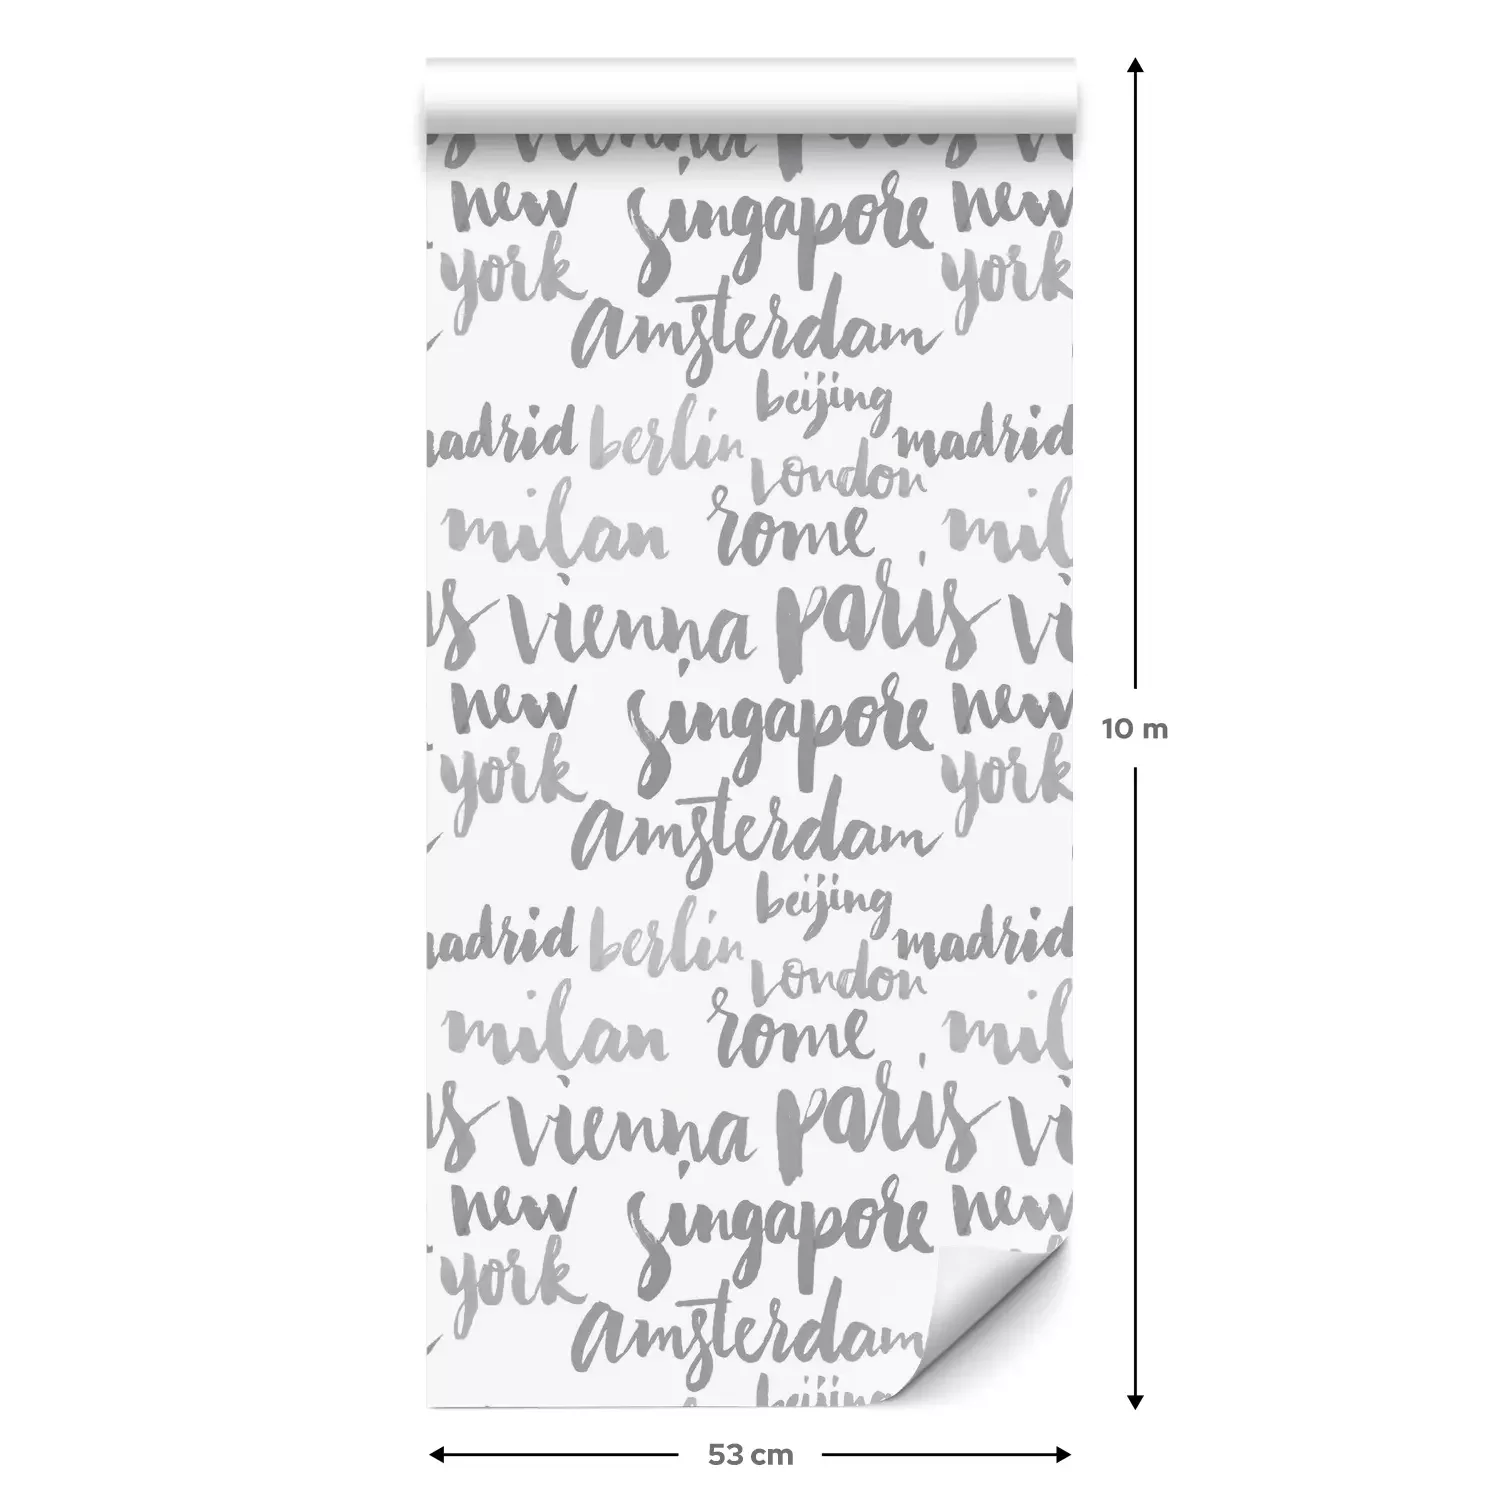 s vienna paris vi
new singapore new
york york
amsterdam
beijing
madrid berlin madrid
london
milan rome mil
is vienna paris vi
new singapore new
york york
amsterdam
beijing
madrid berlin madrid
london
milan rome mil
is vienna paris vi
new singapore new
york
amsterdam
beijing
10 m
53 cm